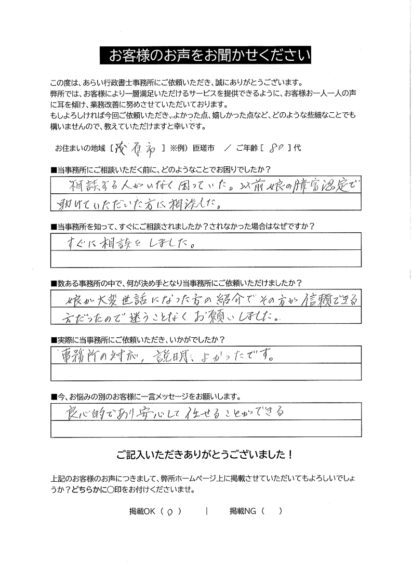 お客様のお声をお聞かせください
この度は、あらい行政書士事務所にご依頼いただき、誠にありがとうございます。
弊所では、お客様により一層満足いただけるサービスを提供できるように、お客様お一人一人の声
に耳を傾け、業務改善に努めさせていただいております。
もしよろしければ今回ご依頼いただき、よかった点、嬉しかった点など、どのような些細なことでも
構いませんので、教えていただけますと幸いです。
お住まいの地域 [ 茂原市 ] ※例）匝瑳市 / ご年齢 [ 80 ] 代
■当事務所にご相談いただく前に、どのようなことでお困りでしたか？
相談する人がいなく困っていた。以前娘の障害認定で
助けていただいた方に相談した。
■当事務所を知って、すぐにご相談されましたか？されなかった場合はなぜですか？
すぐに相談をしました。
■数ある事務所の中で、何が決め手となり当事務所にご依頼いただけましたか？
娘が大変世話になった方の紹介でその方が信頼できる
方だったので迷うことなくお願いしました。
■実際に当事務所にご依頼いただき、いかがでしたか？
事務所の対応、説明、よかったです。
■今、お悩みの別のお客様に一言メッセージをお願いします。
良心的であり安心して任せることができる
ご記入いただきありがとうございました！
上記のお客様のお声につきまして、弊所ホームページ上に掲載させていただいてもよろしいでしょ
うか？どちらかに〇印をお付けくださいませ。
掲載OK（ 〇 ） | 掲載NG（ ）